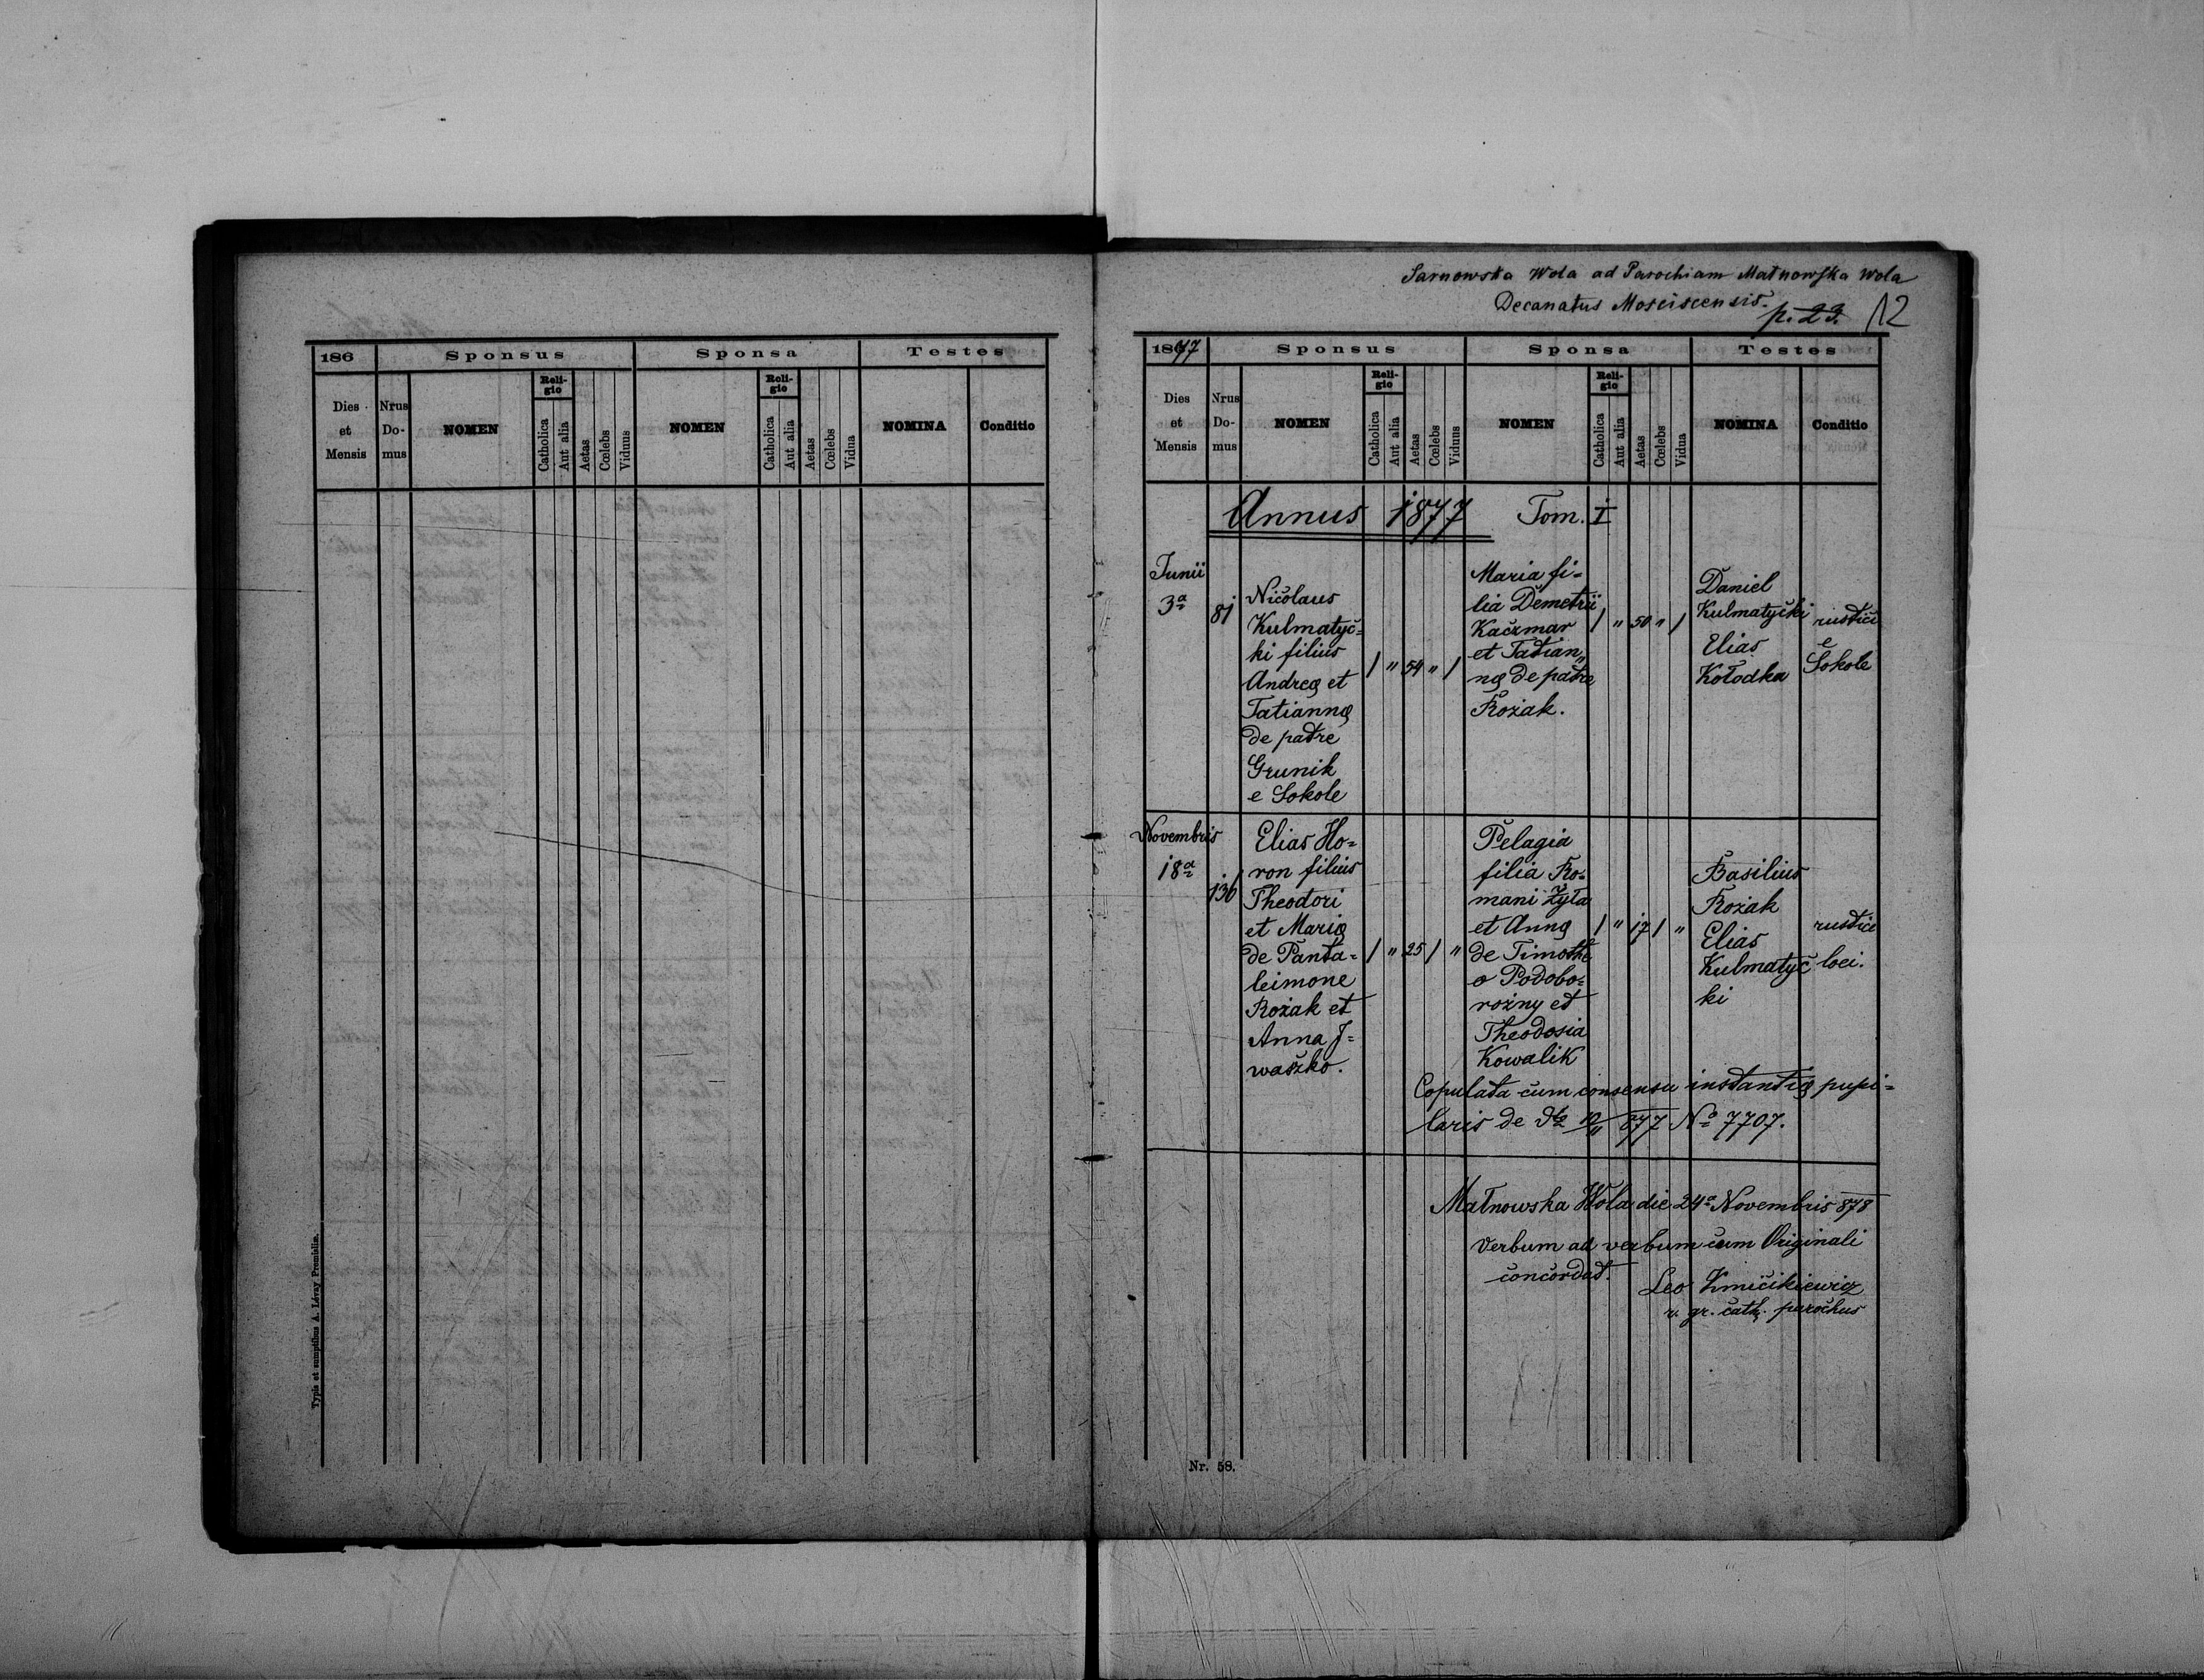 186
Sponsus
Sponsa
Testes
Dies et Mensis
Nrus Do-mus
NOMEN
Religio
Catholica
Aut alia
Aetas
Cœlebs
Viduus
NOMEN
Religio
Catholica
Aut alia
Aetas
Cœlebs
Vidua
NOMINA
Conditio
Typis et sumptibus A. Lévay Premisliæ.
Sarnowska Wola ad Parochiam Małnowska Wola
Decanatus Mosciscensis.
p. 23. 12
1877
Sponsus
Sponsa
Testes
Dies et Mensis
Nrus Do-mus
NOMEN
Religio
Catholica
Aut alia
Aetas
Cœlebs
Viduus
NOMEN
Religio
Catholica
Aut alia
Aetas
Cœlebs
Vidua
NOMINA
Conditio
Annus 1877 Tom. I
Junii
3a
81
Nicolaus
Kulmatyc=
ki filius
Andreę et
Tatiannę
de patre
Grunik
e Sokole
/ " 54 " /
Maria fi=
lia Demetrii
Kaczmar
et Tatian„
nę de patre
Rożak.
/ " 50 " /
Daniel
Kulmatycki
Elias
Kołodka
rustici
e
Sokole
Novembris
18a
130
Elias Ho=
ron filius
Theodori
et Marię
de Panta=
leimone
Rożak et
Anna I=
waszko.
/ " 25 / "
Pelagia
filia Ro=
mani Żyła
et Annę
de Timothe
o Podobo=
rożny et
Theodosia
Kowalik
/ " 17 / "
Basilius
Rożak
Elias
Kulmatyc
ki
rustici
loci.
Copulata cum consensu instantię pupi=
laris de dto 10/11 877 No 7707.
Małnowska Wola die 24a Novembris 878
Verbum ad verbum cum Originali
concordat.
Leo Kmicikiewicz
r. gr. cath. parochus
Nr. 58.